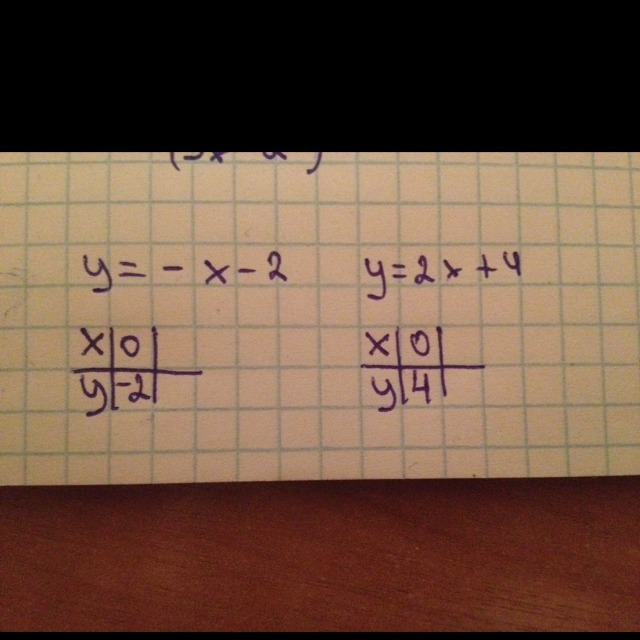 y = - x - 2 y = 2x + 4
x | 0 | x | 0 |
y | -2 | y | 4 |